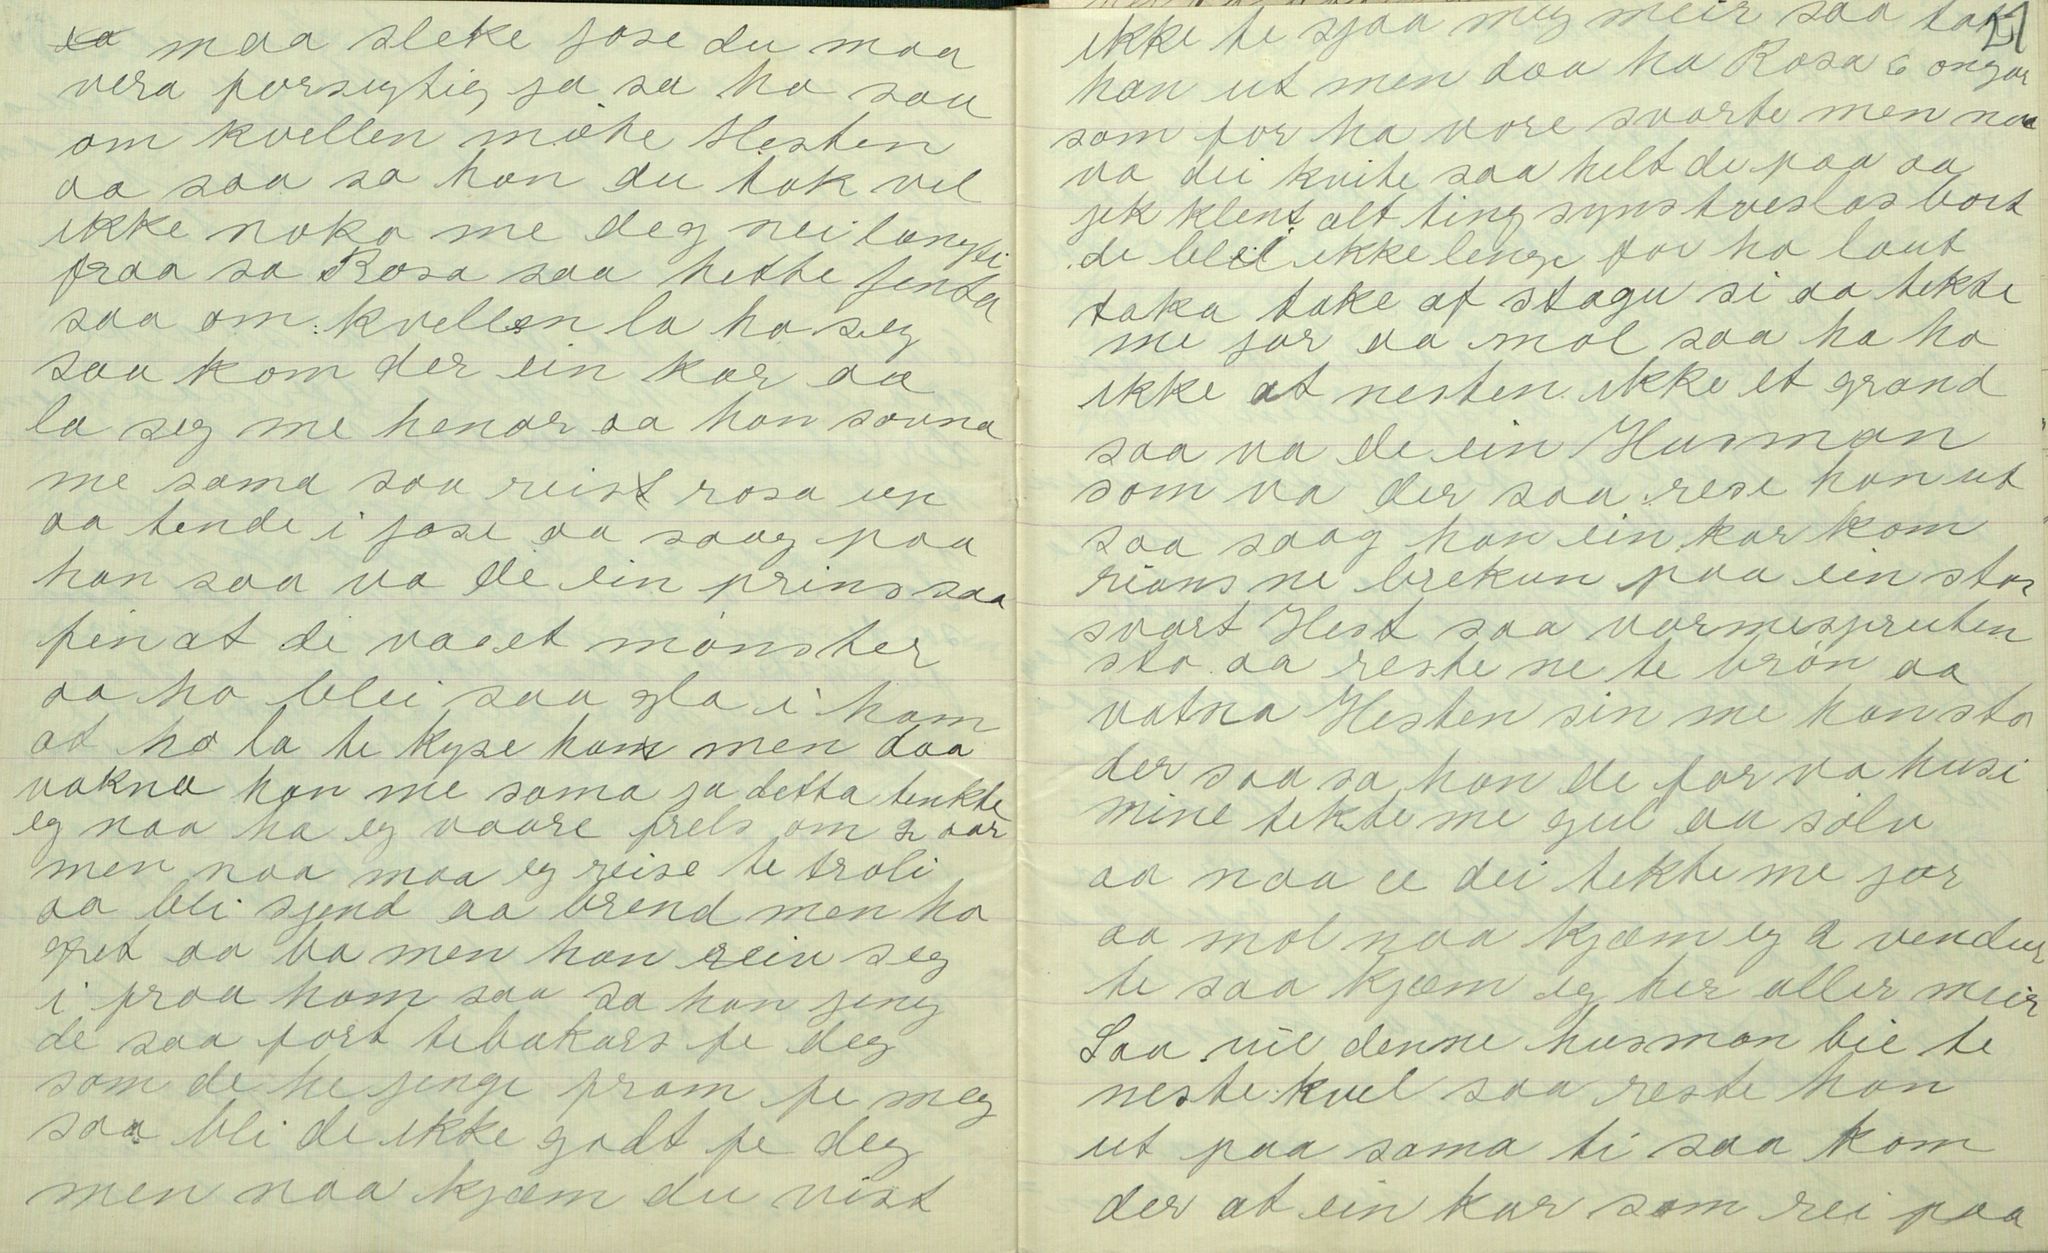 maa sleke jose du maa
vera forsygtig ja sa ho saa
om kvellen møte Hesten
aa saa sa han du tok vel
ikke noko me deg nei langti
fraa sa Rosa saa hette jenta
saa om kvellen la ho seg
saa kom der ein kar aa
la seg me henar aa han sovna
me sama saa reist rosa up
aa tende i jose aa saag paa
han saa va de ein prins saa
fin at de va et mønster
aa ho blei saa gla i ham
at ho la te kyse ham men daa
vakna han me sama ja detta tenkte
eg naa ha eg vaare frels om 2 aar
men naa maa eg reise te troli
aa bli sjend aa brend men ho
gret aa ba men han reiv seg
i fraa hom saa sa han jeng
de saa fort tebakars fe deg
som de he jenge fram fe meg
saa bli de ikke godt fe deg
men naa kjæm du vist
27
ikke te sjaa meg meir saa
han ut men daa ha Rosa 6 ongar
som for ha vore svarte men naa
va dei kvite saa helt de paa aa
jek klent alt ting synst veslas bort
de blei ikke lenge for ho laut
taka take af stogu si aa tekte
me jor aa mol saa ha ho
ikke at nesten ikke et grand
saa va de ein Husman
som va der saa rese han ut
saa saag han ein kar kom
rians ne brekun paa ein stor
svart Hest saa varmespruten
sto aa reste ne te brøn aa
vatna Hesten sin me han sto
der saa sa han de for va husi
mine tekte me gul aa sølv
aa naa æ dei tekte me jor
aa mol naa kjæm eg 2 vendur
te saa kjæm eg her aller meir
Saa vil denne husman bie te
neste kvel saa reste han
ut paa sama ti saa kom
der at ein kar som rei paa